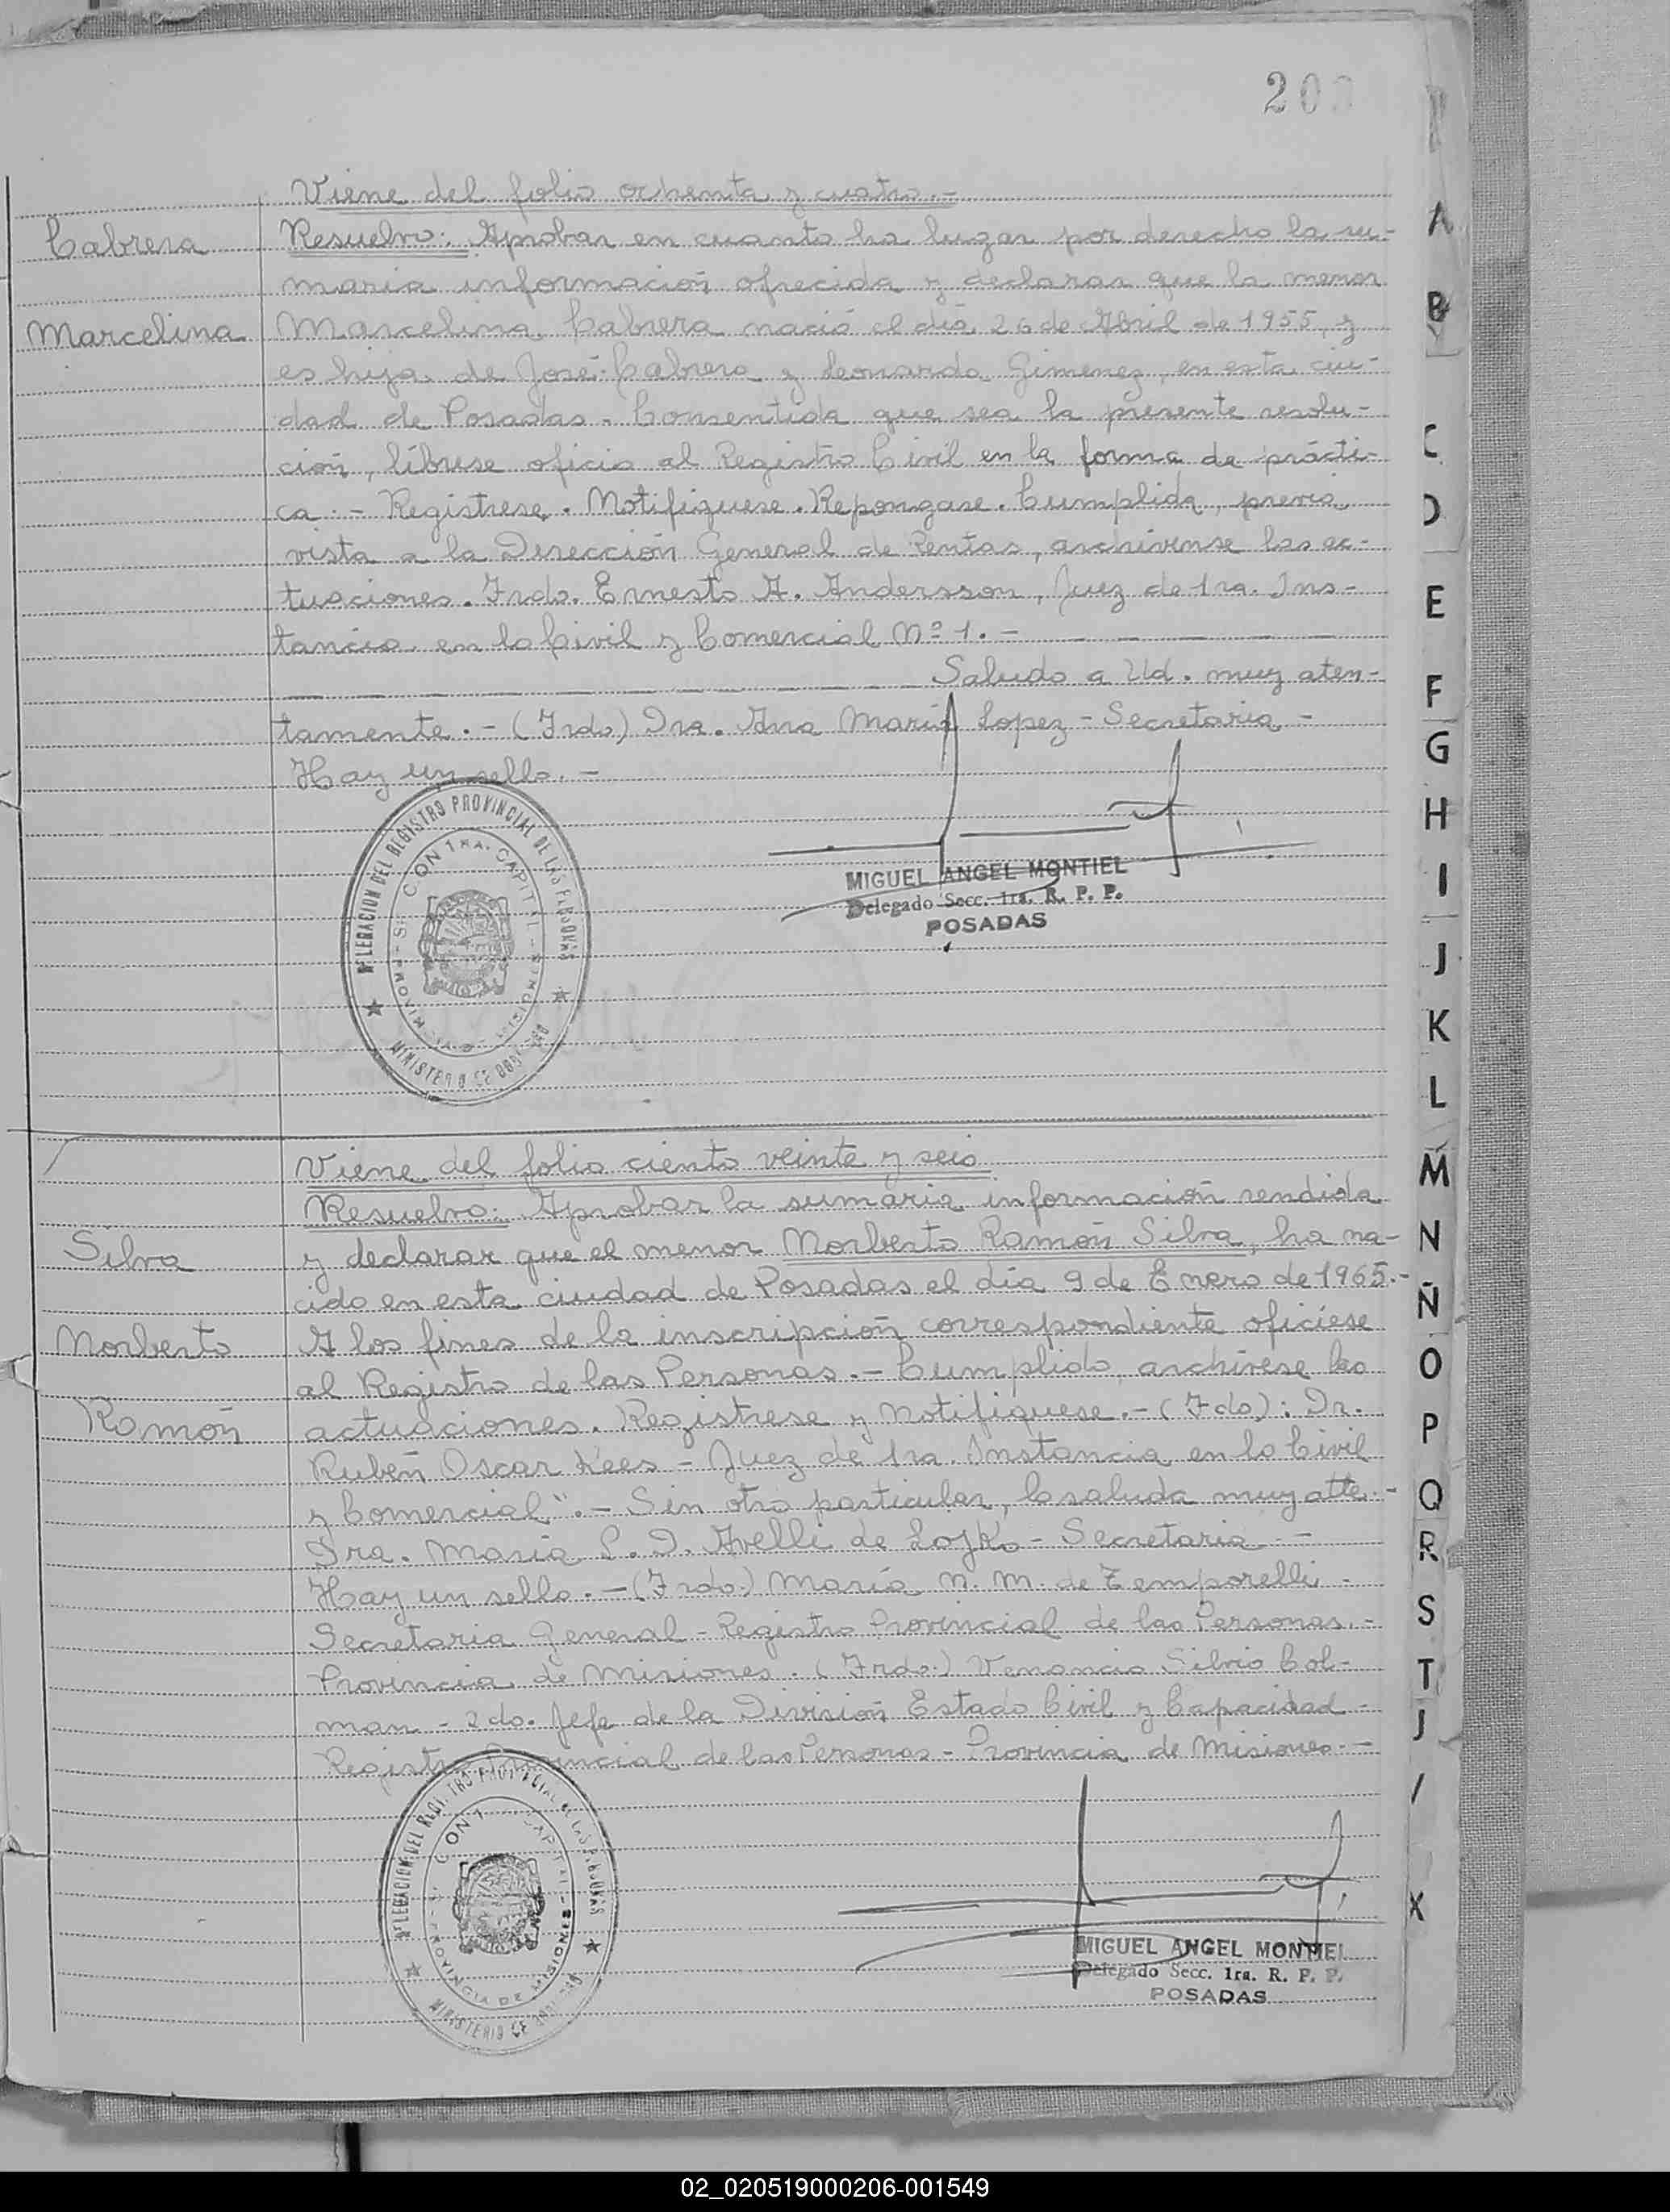 200
Viene del folio ochenta y cuatro.-
Cabrera
Resuelvo: Aprobar en cuanto ha lugar por derecho la su-
maria información ofrecida y declarar que la menor
Marcelina
Marcelina Cabrera nació el día 26 de Abril de 1955, y
es hija de José Cabrera y Leonarda Gimenez, en esta ciu-
dad de Posadas.- Consentida que sea la presente resolu-
ción, líbrese oficio al Registro Civil en la forma de prácti-
ca.- Registrese. Notifiquese. Repongase. Cumplida, previa
vista a la Dirección General de Rentas, archívense las ac-
tuaciones. Frdo. Ernesto A. Andersson, Juez de 1ra. Ins-
tancia en lo Civil y Comercial Nº 1.-
Saludo a Ud. muy aten-
tamente.- (Frdo) Dra. Ana María Lopez - Secretaria -
Hay un sello.-
DELEGACION DEL REGISTRO PROVINCIAL DE LAS PERSONAS
MIGUEL ANGEL MONTIEL
Delegado Secc. 1ra. R. P. P.
POSADAS
Viene del folio ciento veinte y seis
Resuelvo: Aprobar la sumaria información rendida
Silva
y declarar que el menor Norberto Ramón Silva, ha na-
cido en esta ciudad de Posadas el día 9 de Enero de 1965.-
Norberto
A los fines de la inscripción correspondiente ofíciese
al Registro de las Personas.- Cumplido, archívese las
Ramón
actuaciones. Registrese y Notifiquese.- (Fdo): Dr.
Rubén Oscar Kees - Juez de 1ra. Instancia en lo Civil
y Comercial".- Sin otro particular, la saluda muy atte.-
Dra. María P. D. Avelli de Lojko - Secretaria -
Hay un sello.- (Frdo.) María N. M. de Temporelli -
Secretaria General - Registro Provincial de las Personas.-
Provincia de Misiones. (Frdo.) Venancio Silvio Col-
man - 2do. Jefe de la División Estado Civil y Capacidad -
Registro Provincial de las Personas - Provincia de Misiones.-
DELEGACION DEL REGISTRO PROVINCIAL DE LAS PERSONAS
PROVINCIA DE MISIONES
MIGUEL ANGEL MONTIEL
Delegado Secc. 1ra. R. P. P.
POSADAS
A
B
C
D
E
F
G
H
I
J
K
L
M
N
Ñ
O
P
Q
R
S
T
X
02_020519000206-001549